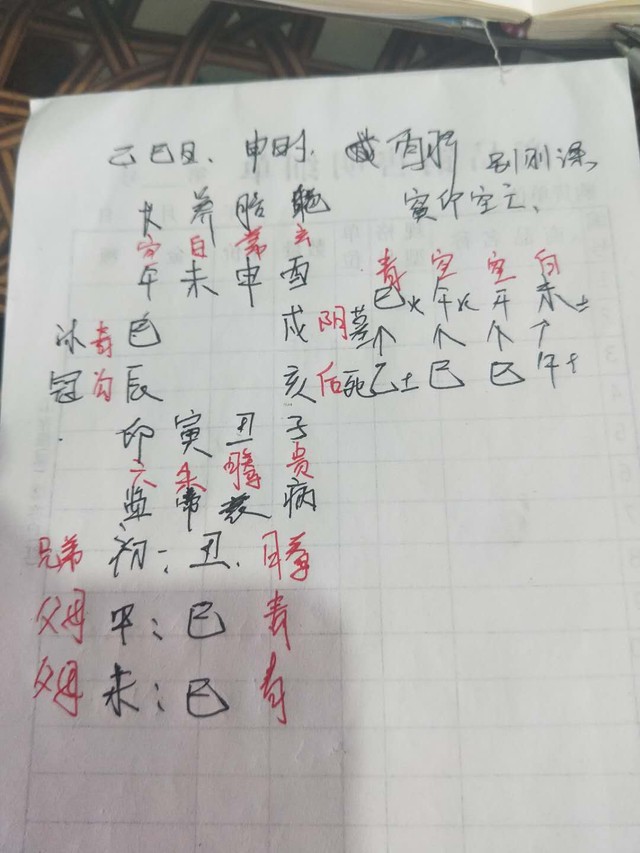 乙巳日、申时、酉将 别则课、
寅卯空亡、
长 养 胎 绝
空 白 常 玄
午 未 申 酉 青 空 空 白
巳火 午火 午 未土
沐 青 巳 戌 阴 墓 个 个 个 个
冠 勾 辰 亥 后 死 乙土 巳 巳 午
卯 寅 丑 子
六 朱 螣 贵
常 衰 病
兄弟 初：丑、螣
父母 中：巳 青
父母 末：巳 青